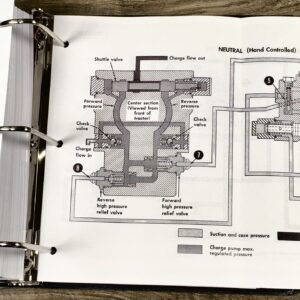 Shuttle valve
Charge flow out
NEUTRAL (Hand Controlled)
5
Forward pressure
Center section (Viewed from front of tractor)
Reverse pressure
Check valve
Check valve
Charge flow in
7
8
Reverse high pressure relief valve
Forward high pressure relief valve
Suction and case pressure
Charge pump max. regulated pressure